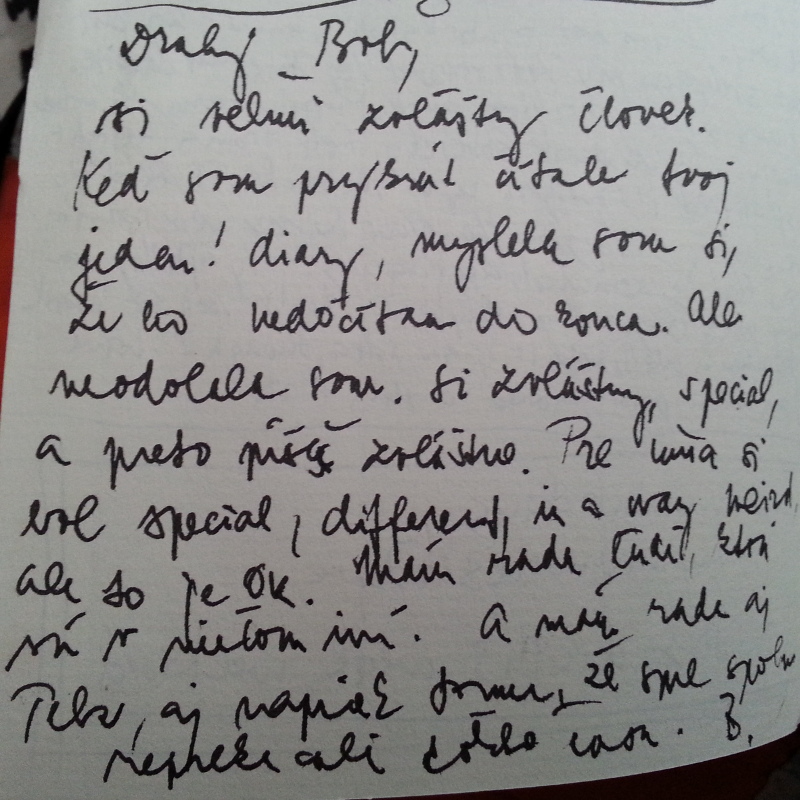 Drahý Boby,
si velmi zvláštny človek.
Keď som prvýkrát čítala tvoj
jeden! diary, myslela som si,
že ho nedočítam do konca. Ale
neodolala som. Si zvláštny, special,
a preto píšeš zvláštne. Pre mňa si
bol special, different, in a way weird,
ale to je OK. Mám rada ľudí, ktorí
sú v niečom iní. A mám rada aj
Teba, aj napriek tomu, že sme spolu
nepretekali čoho času. B.